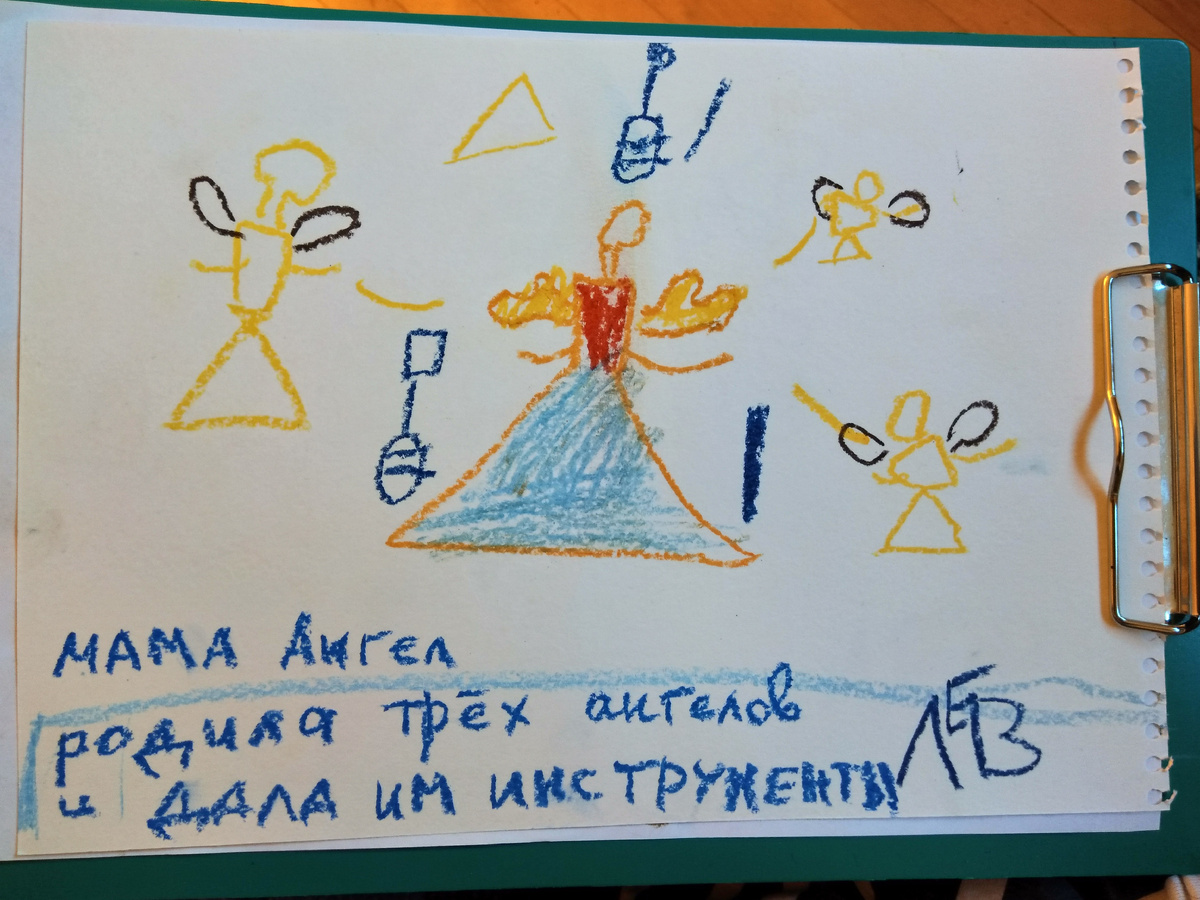 МАМА Ангел
родила трёх ангелов
и ДАЛА ИМ ИНСТРУМЕНТЫ
ЛЕВ